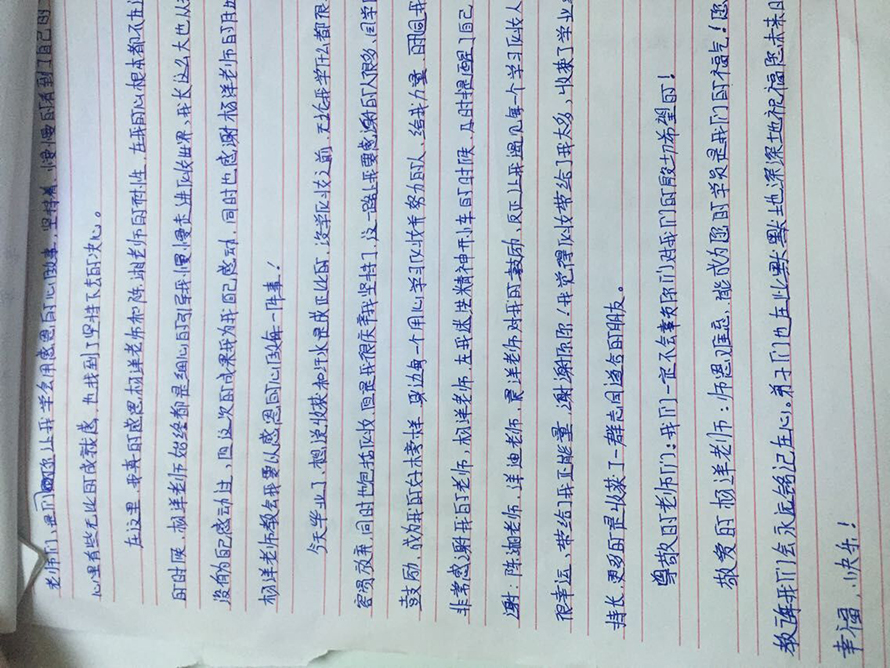 老师们，是你们让我学会用感恩的心做事，坚持着，慢慢的看到了自己的
心里有些无比的成就感，也找到了坚持下去的决心。
在这里，我真的感恩杨洋老师和陈湘老师的耐性，在我的心根本都不在
的时候，杨洋老师始终都是细心的引导我慢慢走进化妆世界，我长这么大也从
没有为自己感动过，因这次的成果我为我自己感动，同时也感谢杨洋老师的
杨洋老师教会我要以感恩的心做每一件事！
今天毕业了，想说收获和汗水是成正比的，没学化妆之前，无论我学什么都很
容易放弃，同时也包括化妆，但是我很庆幸我坚持了，这一路上我要感谢的人很多，同学
鼓励，成为我的好榜样，身边每一个用心学习化妆并努力的人，给我力量，
非常感谢我的老师，杨洋老师，在我迷茫精神开小车的时候，及时提醒自己
谢：陈湘老师，洋迪老师，夏洋老师对我的鼓励，反正让我遇见每一个学习化妆人
很幸运，带给了我正能量，谢谢你们！我觉得化妆带给了我太多，收获了学业
特长，更多的是收获了一群志同道合的朋友。
尊敬的老师们：我们一定不会辜负你们对我们的殷切希望的！
敬爱的杨洋老师：师恩难忘，能成为您的学员是我们的福气！愿
教诲我们会永远铭记在心。弟子们也在此默默地深深地祝福您未来
幸福，快乐！